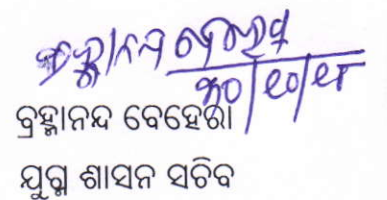 ବ୍ରହ୍ମାନନ୍ଦ ବେହେରା
ବ୍ରହ୍ମାନନ୍ଦ ବେହେରା
ଯୁଗ୍ମ ଶାସନ ସଚିବ